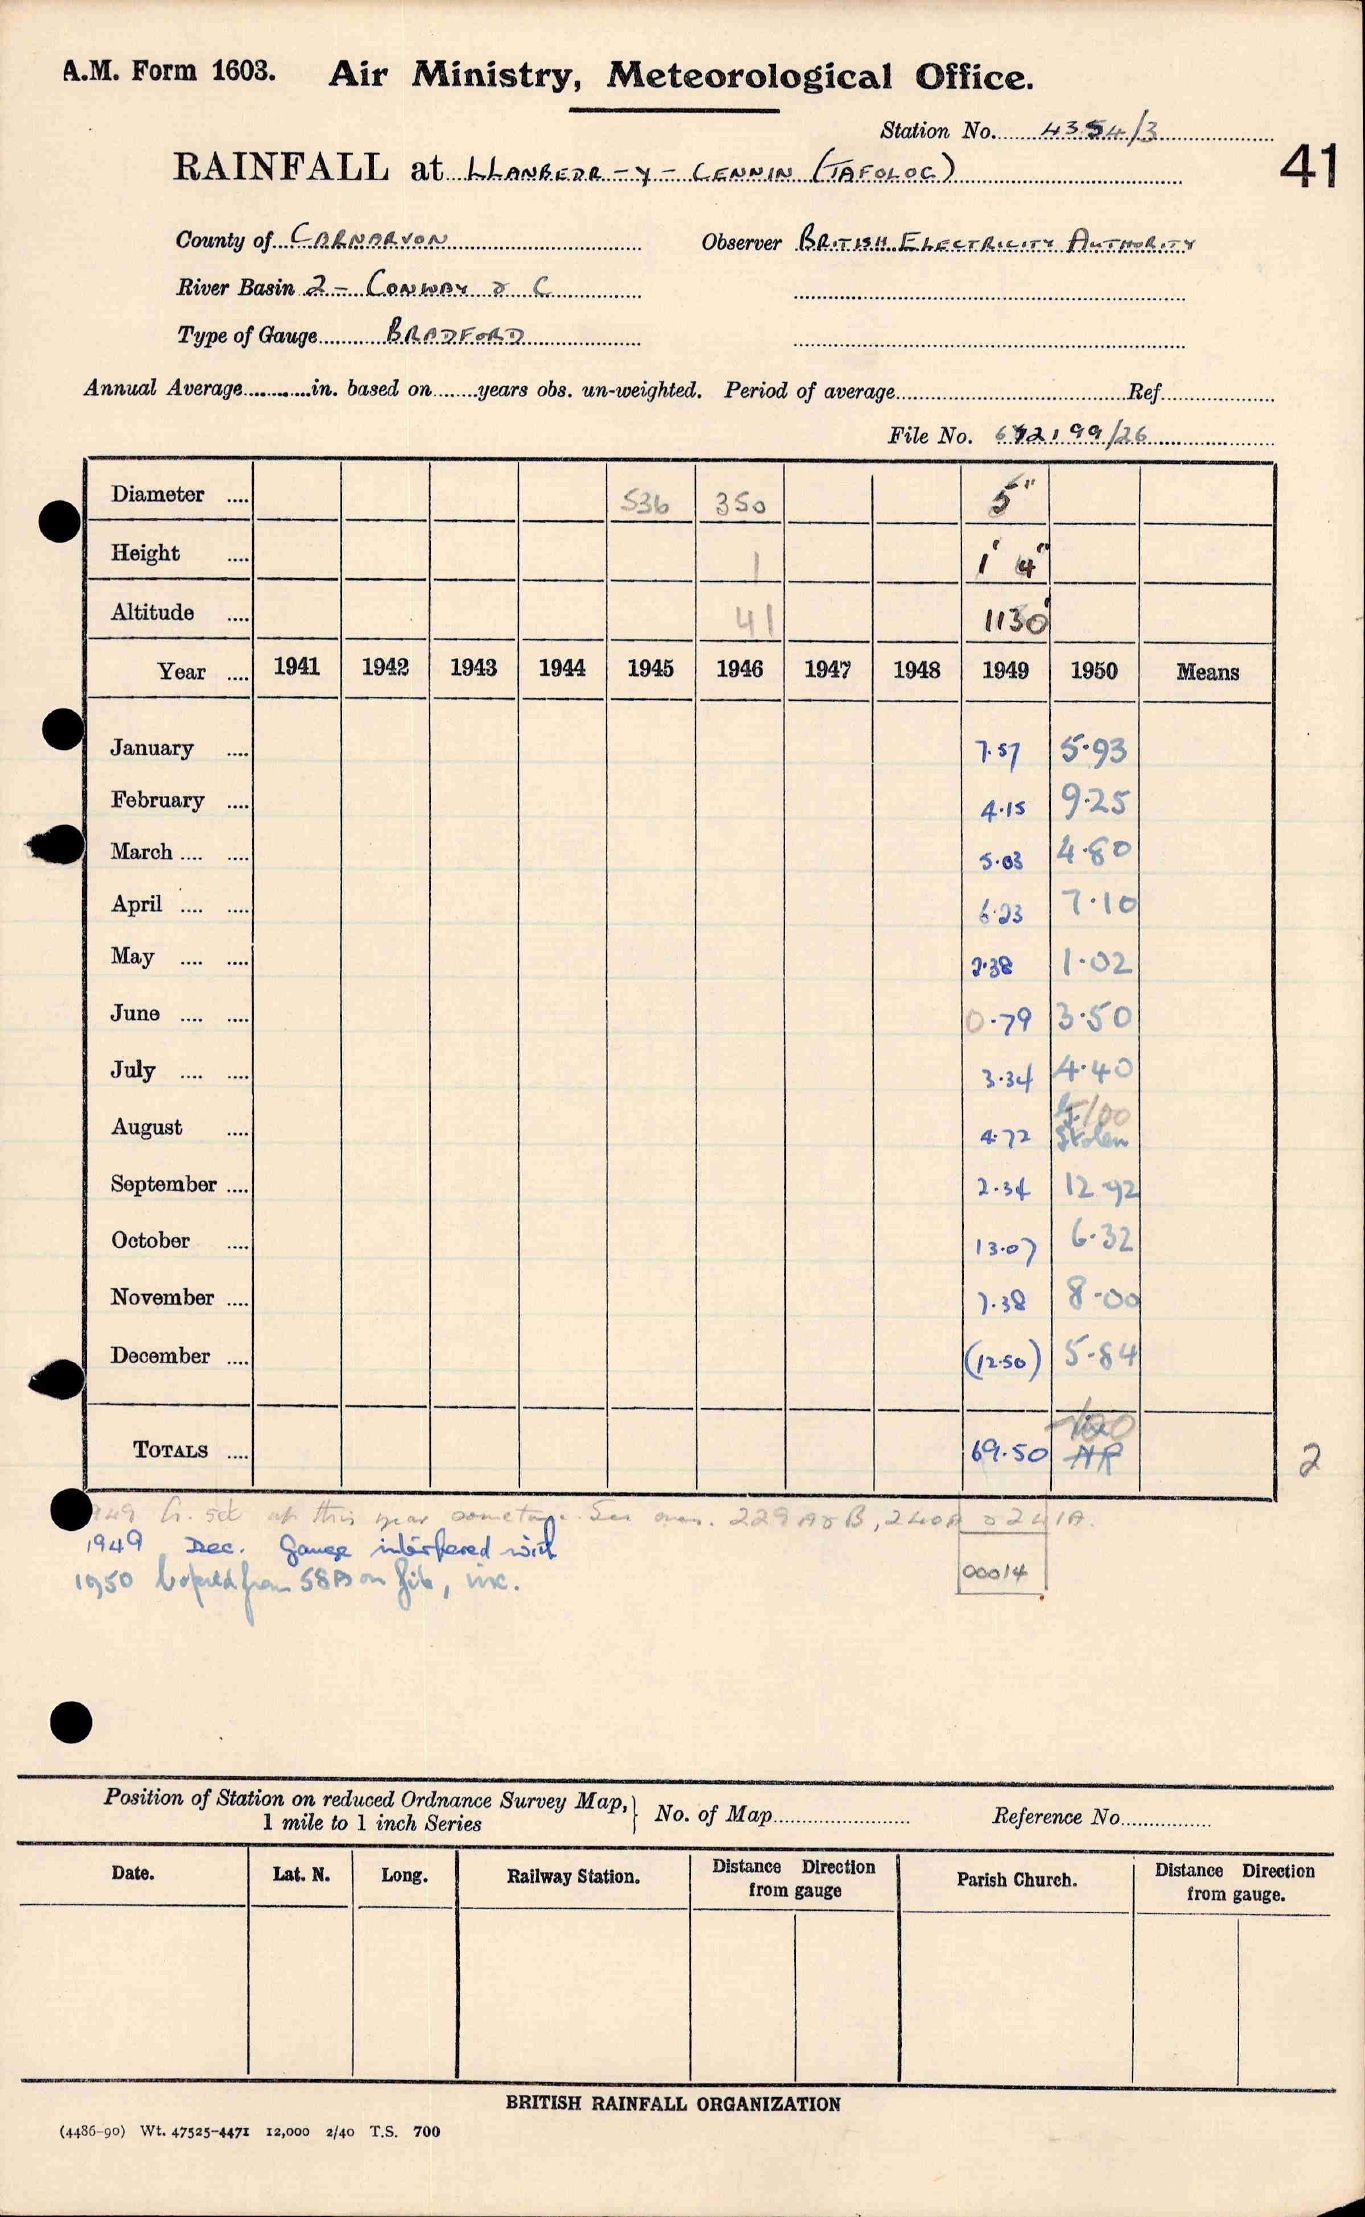 A.M. Form 1603. Air Ministry, Meteorological Office.
Station No. 4354/3
RAINFALL at LLANBEDR-Y-CENNIN (TAFOLOG)
41
County of CARNARVON Observer BRITISH ELECTRICITY AUTHORITY
River Basin 2 - CONWAY & C
Type of Gauge BRADFORD
Annual Average in. based on years obs. un-weighted. Period of average Ref
File No. 99/26
Diameter .... 536 350 5"
Height .... 1 1' 4"
Altitude .... 41 1130'
Year .... 1941 1942 1943 1944 1945 1946 1947 1948 1949 1950 Means
January .... 7.57 5.93
February .... 4.15 9.25
March .... .... 5.03 4.80
April .... .... 6.23 7.10
May .... .... 2.38 1.02
June .... .... 0.79 3.50
July .... .... 3.34 4.40
August .... 4.72 Stolen
September .... 2.34 12.92
October .... 13.07 6.32
November .... 7.38 8.00
December .... (12.50) 5.84
TOTALS .... 69.50
2
1949 G. set up this year sometime. See over. 229 A & B, 240A & 241A.
1949 Dec. Gauge interfered with
1950 Copied from 58B on file, inc.
00014
Position of Station on reduced Ordnance Survey Map, 1 mile to 1 inch Series No. of Map Reference No.
Date. Lat. N. Long. Railway Station. Distance Direction from gauge Parish Church. Distance Direction from gauge.
BRITISH RAINFALL ORGANIZATION
(4486-90) Wt. 47525-4471 12,000 2/40 T.S. 700